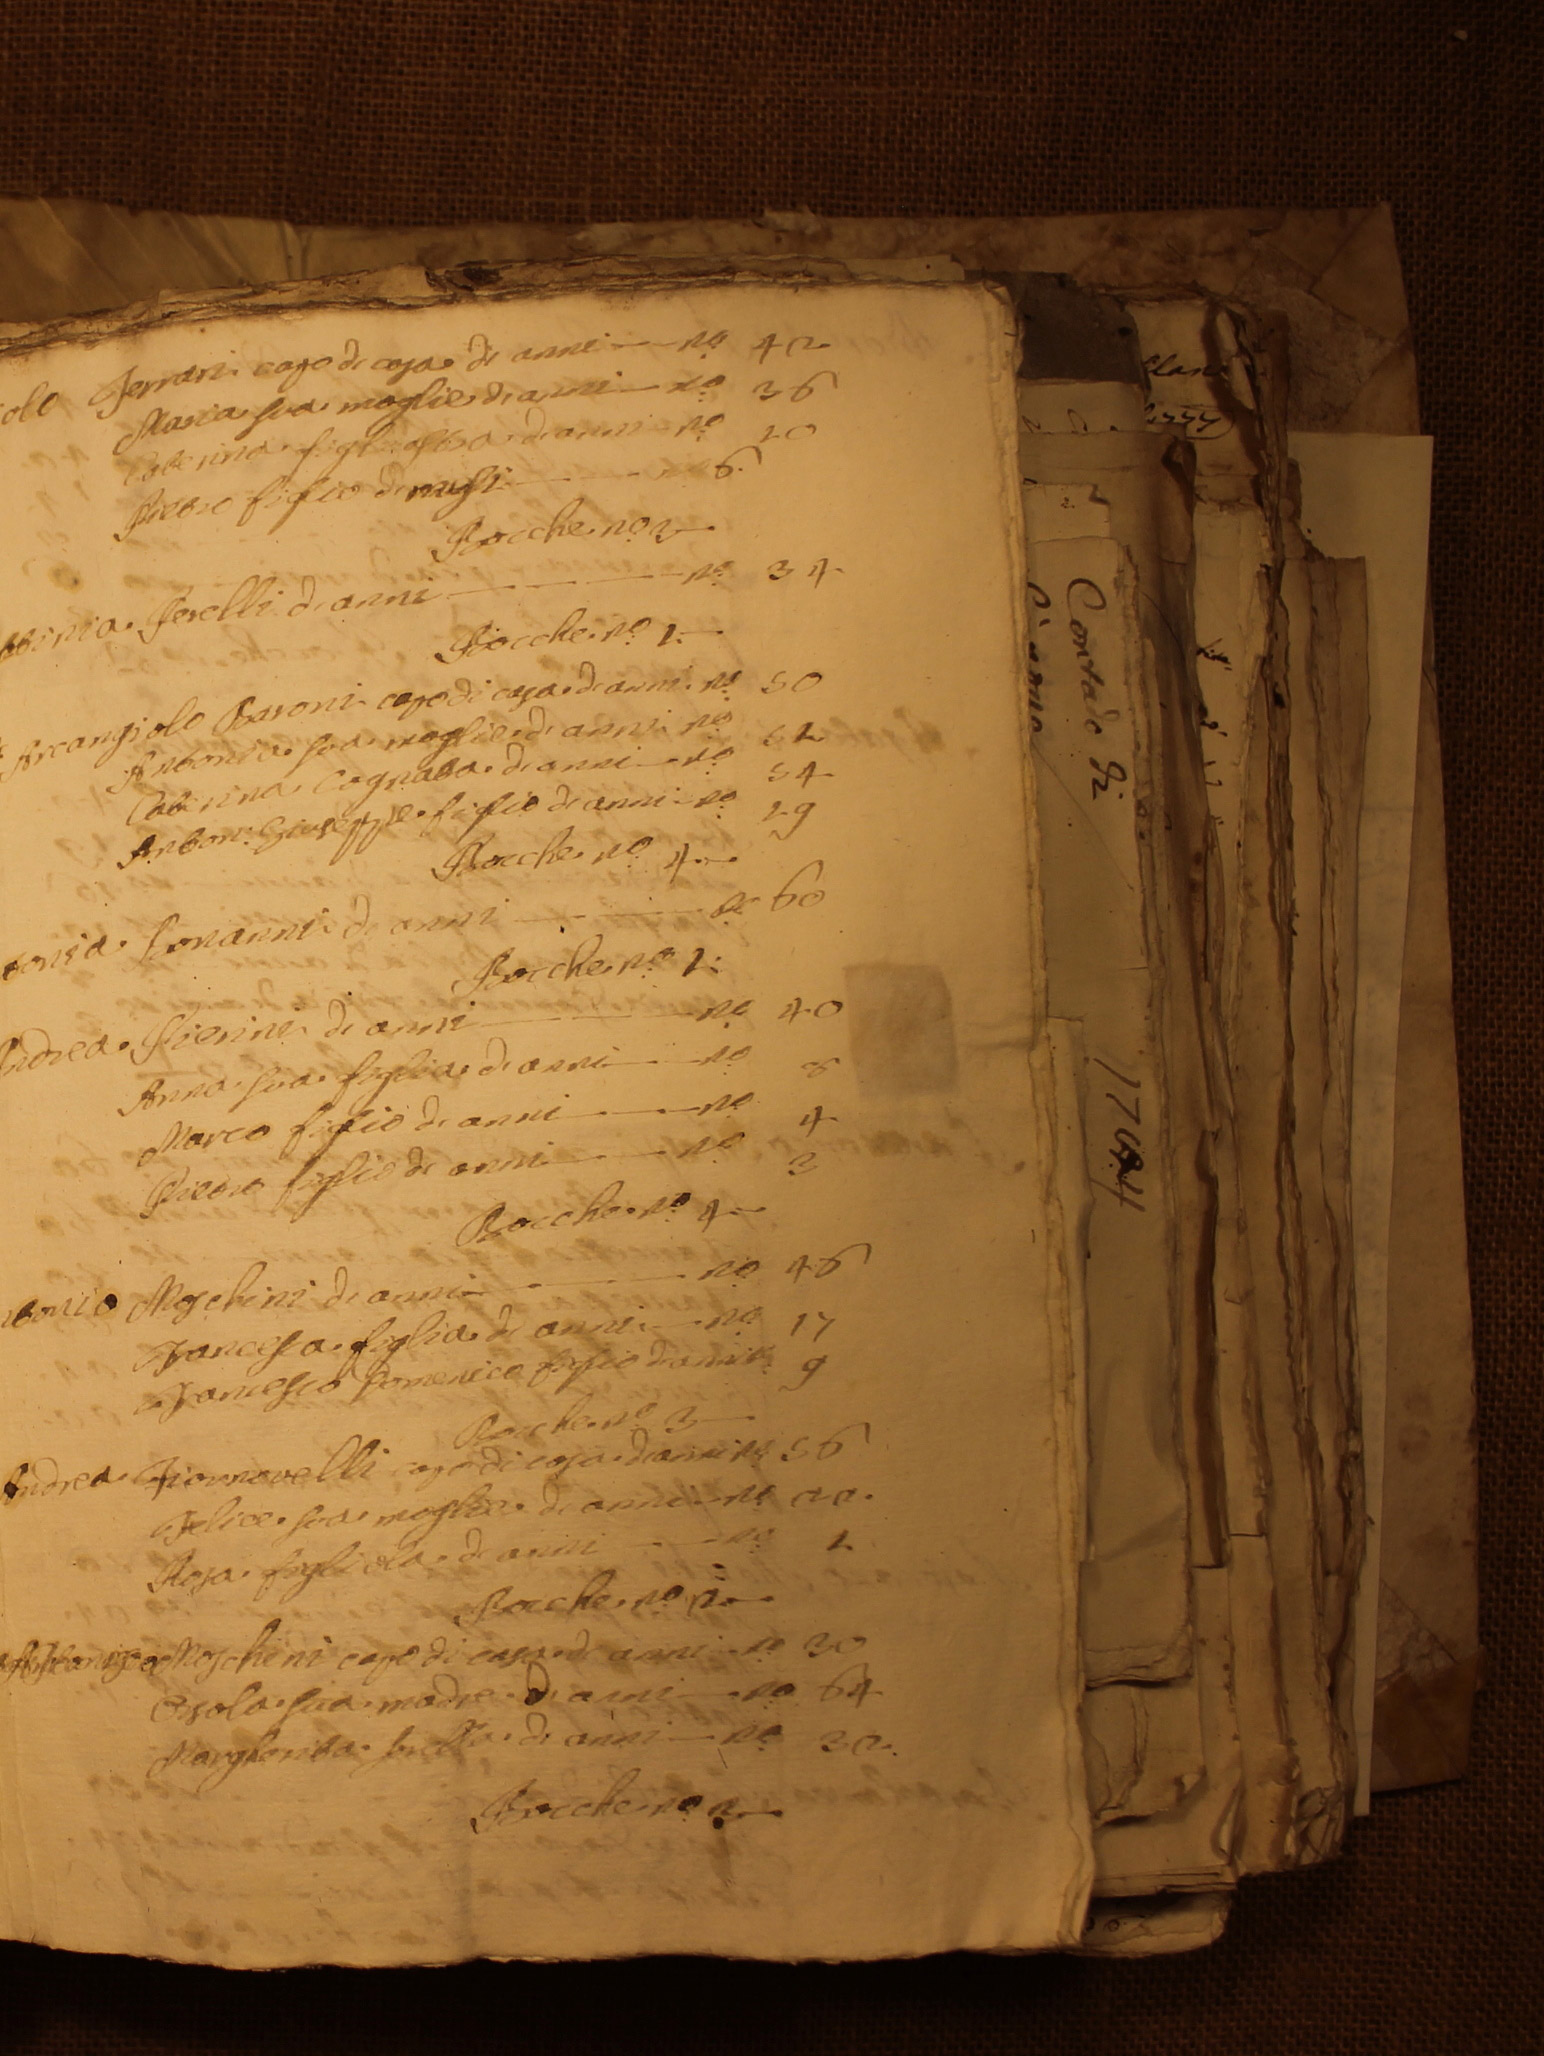 olo Ferrari capo di casa di anni — no 42
Maria sua moglie di anni — no 36
Caterina figliastra di anni — no 10
Pietro figlio di mesi — no 6
Bocche no 3
Perelli di anni — no 34
Bocche no 1
Arcangiolo Baroni capo di casa di anni no 50
Antonia sua moglie di anni no 52
Caterina Cognata di anni — no 54
Anton: Giuseppe figlio di anni no 19
Bocche no 4
tonia Bonanni di anni — no 60
Bocche no 1:
Andrea Pierini di anni — no 40
Anna sua figlia di anni — no 8
Marco figlio di anni — no 4
Pietro figlio di anni — no 3
Bocche no 4
ntonio Moschini di anni — no 46
Francesca figlia di anni — no 17
Francesco Domenico figlio di anni no 9
Bocche no 3
Andrea capo di casa di anni no 56
Felice sua moglie di anni — no
Rosa figliola di anni — no 1
Bocche no
Moschini capo di casa di anni — no 30
Orsola sua madre di anni — no 64
Margherita sorella di anni — no 32
Bocche no
Contado di